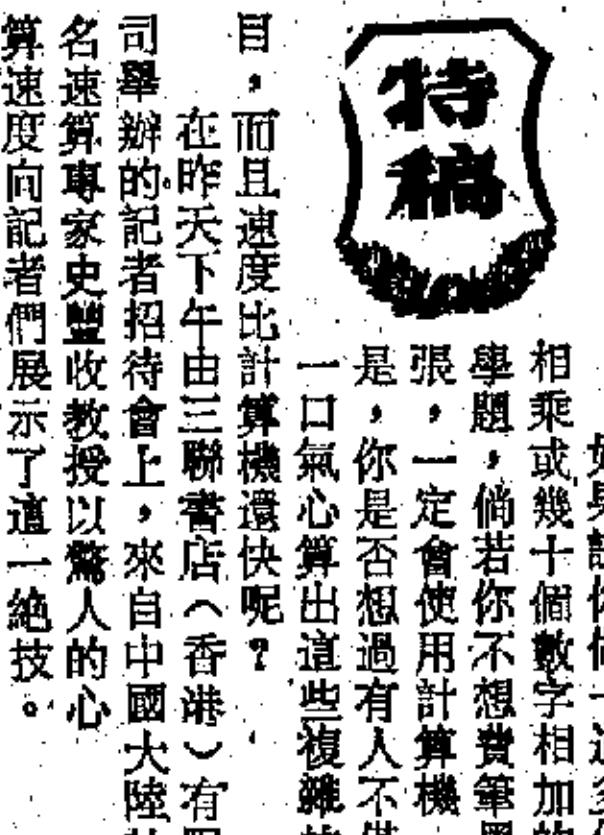 特稿
如果請你做一道多
相乘或幾十個數字相加
學題，倘若你不想費筆
張，一定會使用計算機
是，你是否想過有人不
一口氣心算出這些複雜
目，而且速度比計算機還快呢？
在昨天下午由三聯書店（香港）有
司舉辦的記者招待會上，來自中國大陸
名速算專家史豐收教授以驚人的心
算速度向記者們展示了這一絕技。